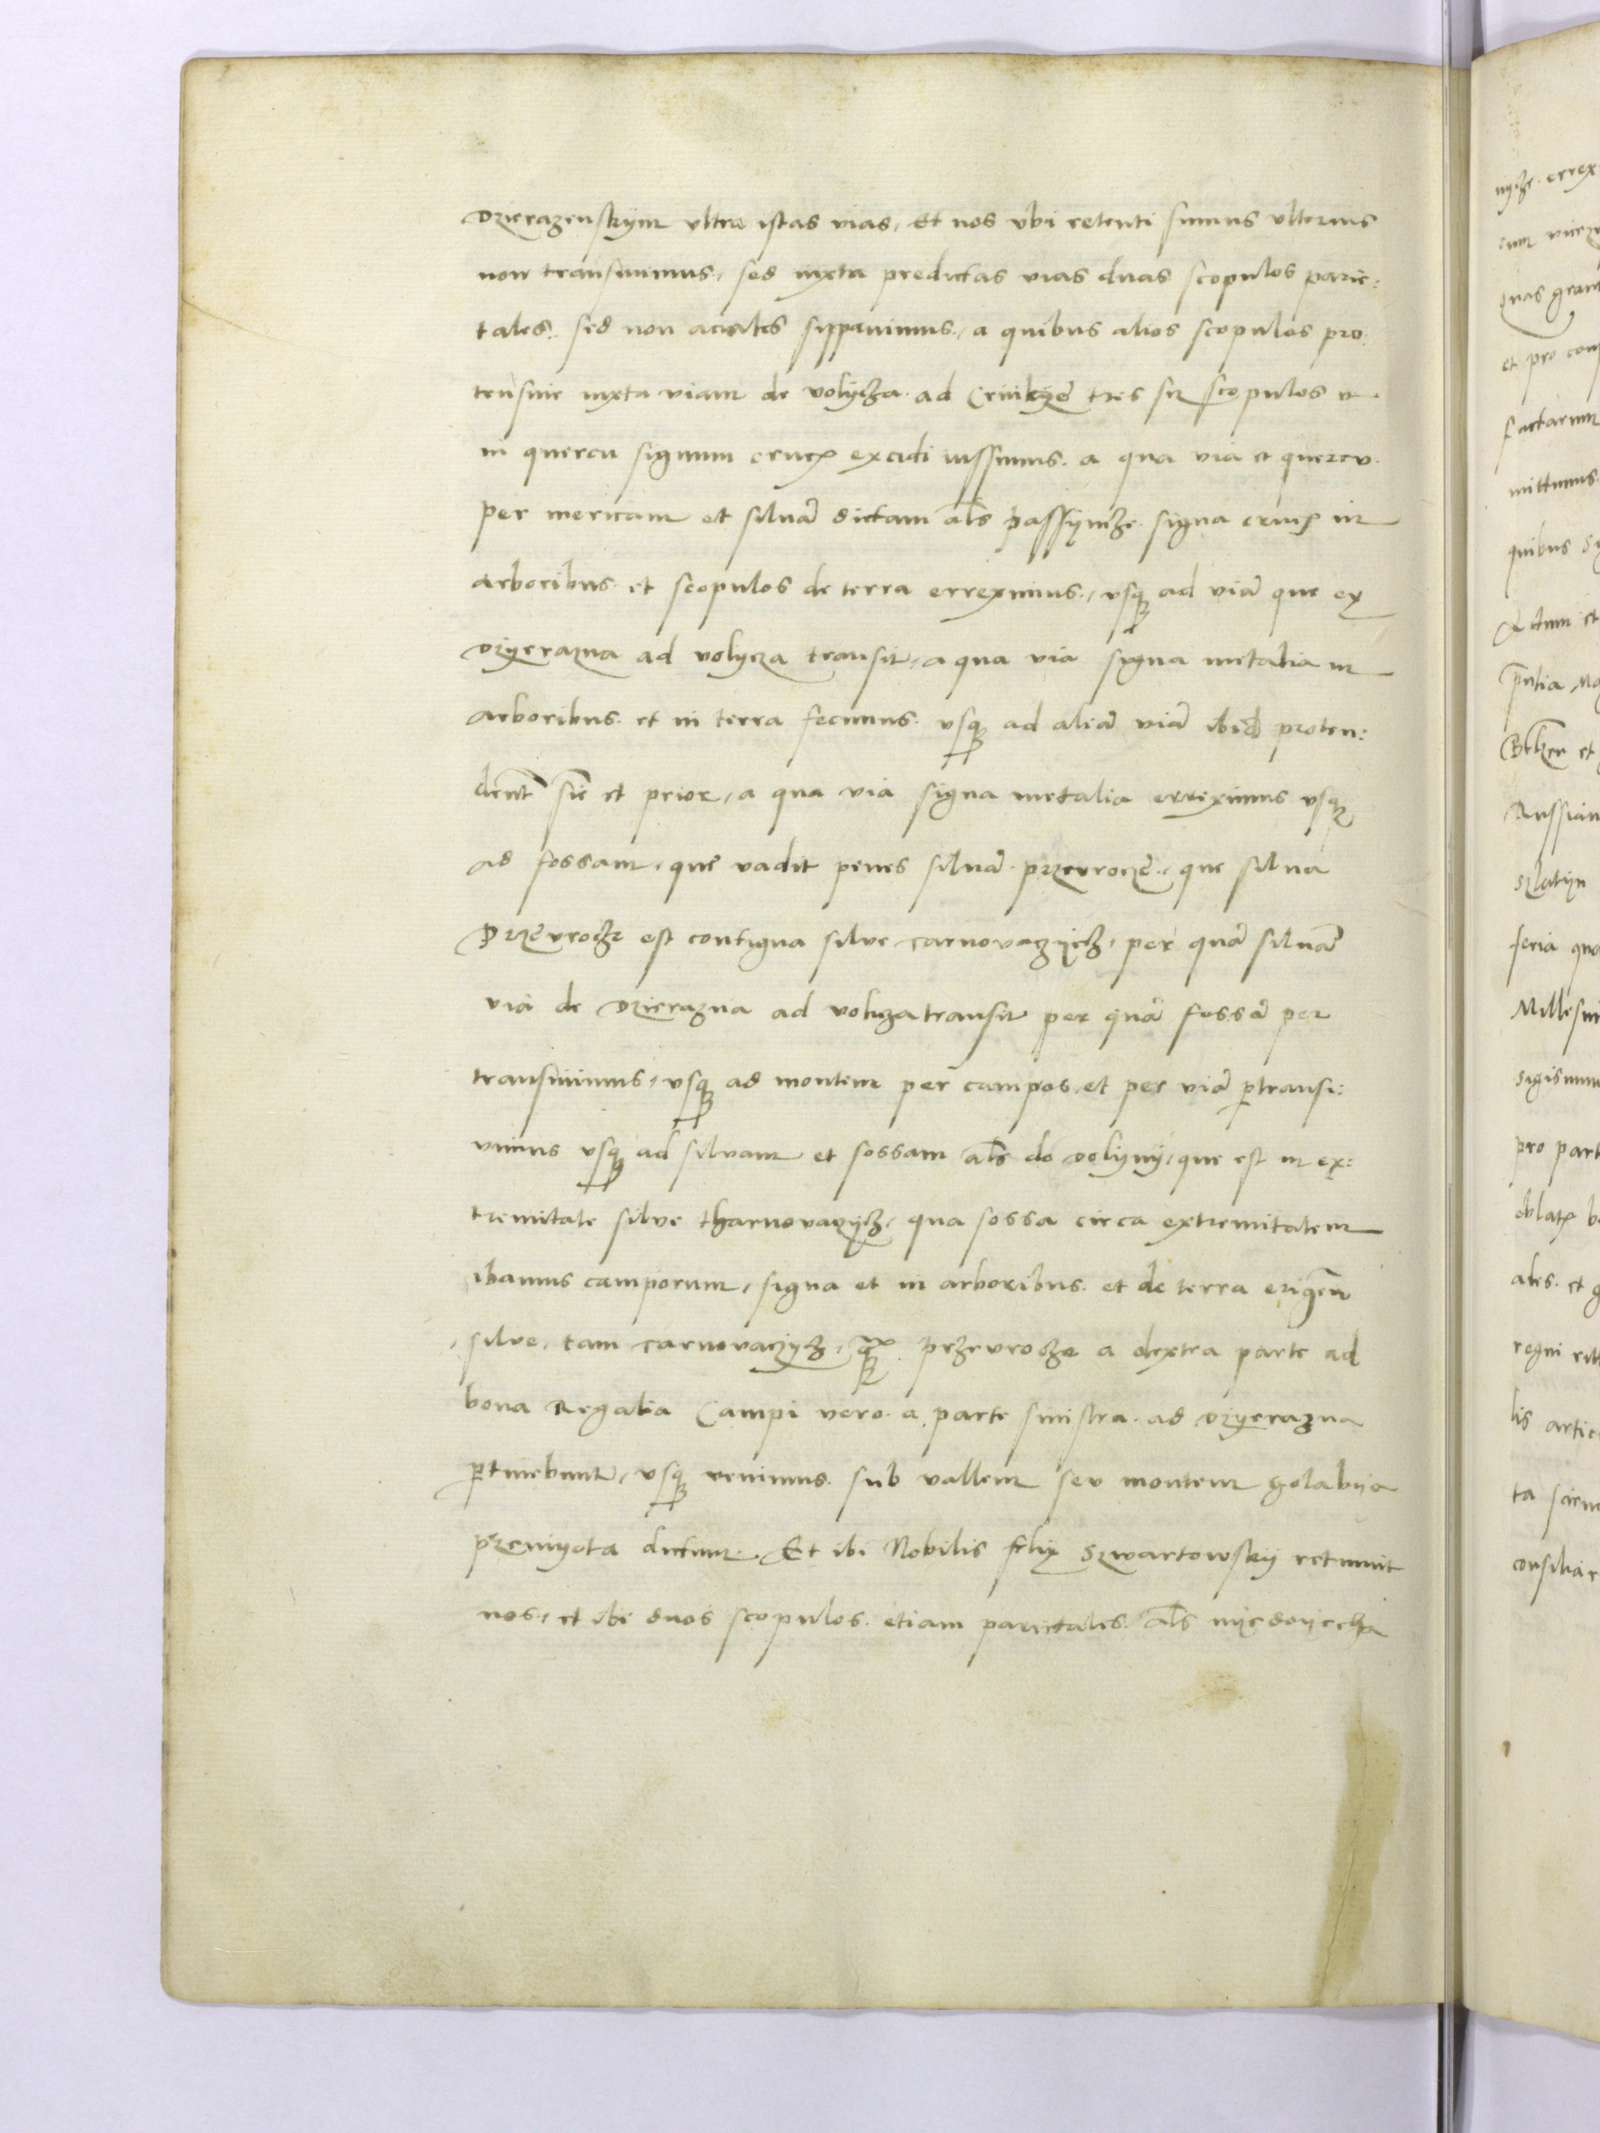 Dzieraznskym ultra istas vias, Et nos ubi retenti sumus ulterius
non transivimus, sed iuxta predictas vias duas scopulos parie:
tales. sed non aciales sippavimus, a quibus alios scopulos pro
tensive iuxta viam de volycza ad tres scopulos
in quercu signum crucis excidi iussimus. a qua via et quercu
per mericam et silvā dictam als passyncze signa crucis in
arboribus et scopulos de terra erreximus, usq ad viā que ex
dzyerazna ad volycza transit, a qua via signa metalia in
arboribus. et in terra fecimus. usq ad aliā viā ibid proten:
dent̄ sic et prior, a qua via signa metalia erreximus usq
ad fossam, que vadit penes silvā przevrocze, que silva
Przevrocze est contigua silve carnovaczycz, per quā silvā
via de dzierazna ad volycza transit per quā fossā per
transivimus, usq ad montem per campos et per viā ptransi:
vimus usq ad silvam et fossam als do volyny, que est in ex:
tremitate silve tharnovaczycz, qua fossa circa extremitatem
ibamus camporum, signa et in arboribus. et de terra erigen
silve, tam carnovaczycz, qq przevrocze a dextra parte ad
bona Regalia Campi vero a parte sinistra. ad dzyerazna
ptinebunt, usq venimus. sub vallem seu montem golabya
przmyota dictum. Et ibi Nobilis felix Szwartowsky retinuit
nos, et ibi duos scopulos. etiam parietales. als nyedoyecha

nycze. errex
cum
quas gran
et pro com
factarum
mittimus.
quibus
Actum et
pntia Ma
et
Russian
feria qua
Millesim
Sigismun
pro part
oblat
ales. et g
regni
lis artic
ta
consiliar